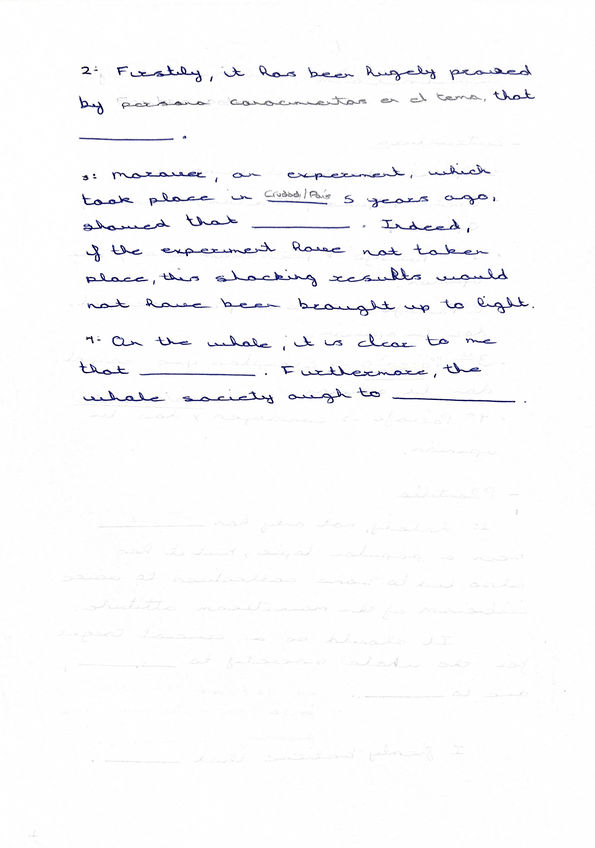 2:- Firstly, it has been hugely proved
by persona conocimientos en el tema, that
__________ .
3: Moreover, an experiment, which
took place in Ciudad/País 5 years ago,
showed that __________ . Indeed,
if the experiment have not taken
place, this shocking results would
not have been brought up to light.
4:- On the whole, it is clear to me
that __________ . Furthermore, the
whole society ough to __________ .